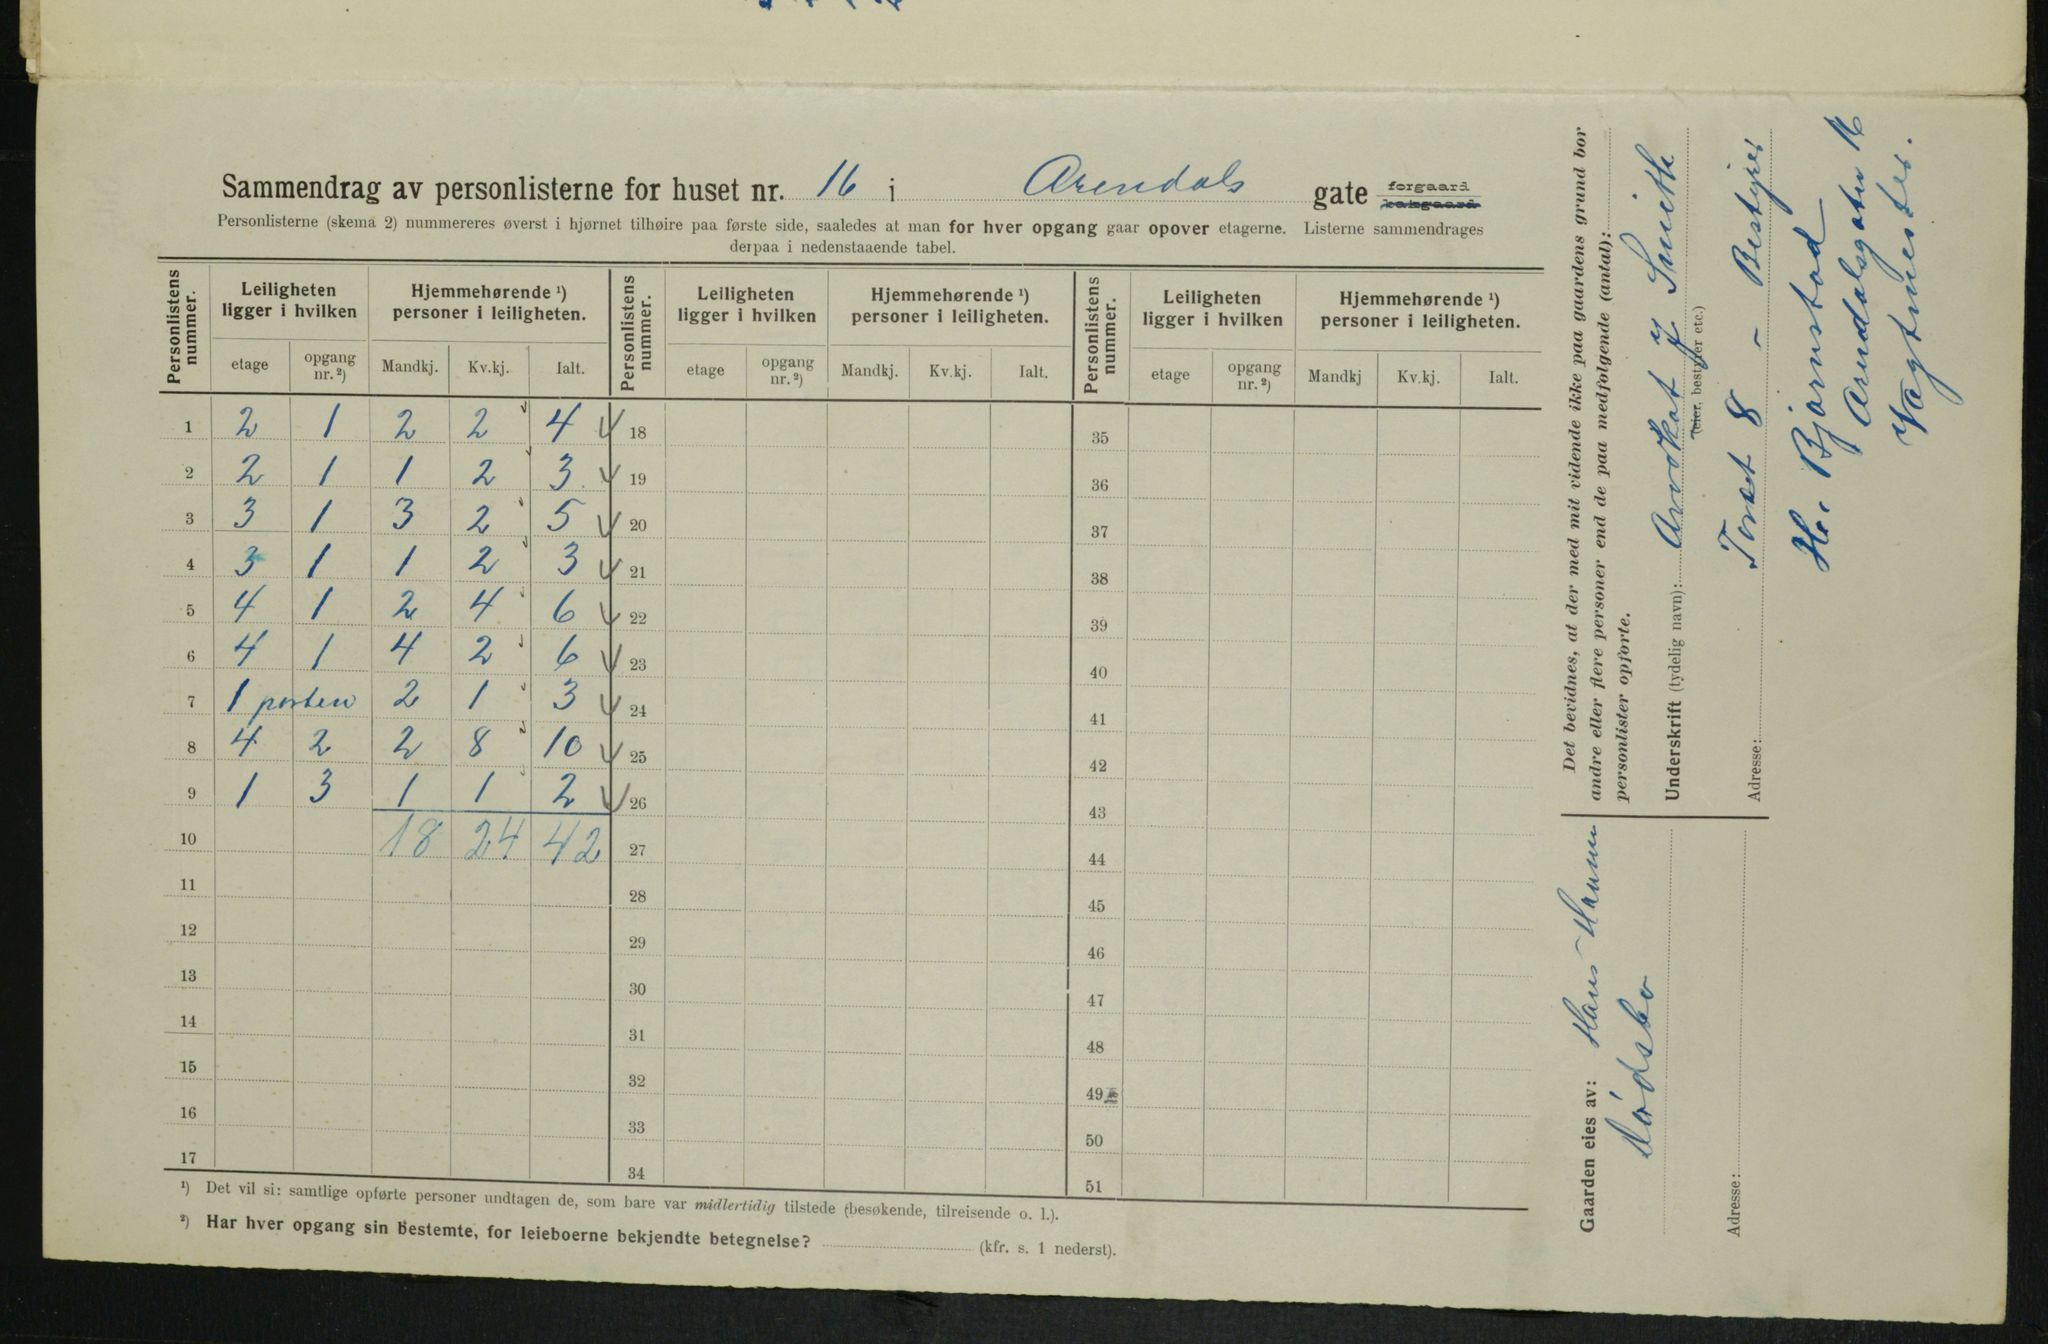 Sammendrag av personlisterne for huset nr. 16 i Arendals gate forgaard bakgaard
Personlisterne (skema 2) nummereres øverst i hjørnet tilhøire paa første side, saaledes at man for hver opgang gaar opover etagerne. Listerne sammendrages
derpaa i nedenstaaende tabel.
Personlistens nummer. Leiligheten ligger i hvilken Hjemmehørende ¹) personer i leiligheten. Personlistens nummer. Leiligheten ligger i hvilken Hjemmehørende ¹) personer i leiligheten. Personlistens nummer. Leiligheten ligger i hvilken Hjemmehørende ¹) personer i leiligheten.
etage opgang nr. ²) Mandkj. Kv.kj. Ialt. etage opgang nr. ²) Mandkj. Kv.kj. Ialt. etage opgang nr. ²) Mandkj Kv.kj. Ialt.
1 2 1 2 2 4 18 35
2 2 1 1 2 3 19 36
3 3 1 3 2 5 20 37
4 3 1 1 2 3 21 38
5 4 1 2 4 6 22 39
6 4 1 4 2 6 23 40
7 1 porten 2 1 3 24 41
8 4 2 2 8 10 25 42
9 1 3 1 1 2 26 43
10 18 24 42 27 44
11 28 45
12 29 46
13 30 47
14 31 48
15 32 49
16 33 50
17 34 51
¹) Det vil si: samtlige opførte personer undtagen de, som bare var midlertidig tilstede (besøkende, tilreisende o. l.).
²) Har hver opgang sin bestemte, for leieboerne bekjendte betegnelse? (kfr. s. 1 nederst).
Det bevidnes, at der med mit vidende ikke paa gaardens grund bor
andre eller flere personer end de paa medfølgende (antal):
personlister opførte.
Underskrift (tydelig navn): Advokat Smith
(eier, bestyrer etc.)
Adresse: Torvet 8 - Bestyrer
H. Bjørnstad
Arendalsgaten 16
Vagtmester.
Gaarden eies av: Hans
Adresse: